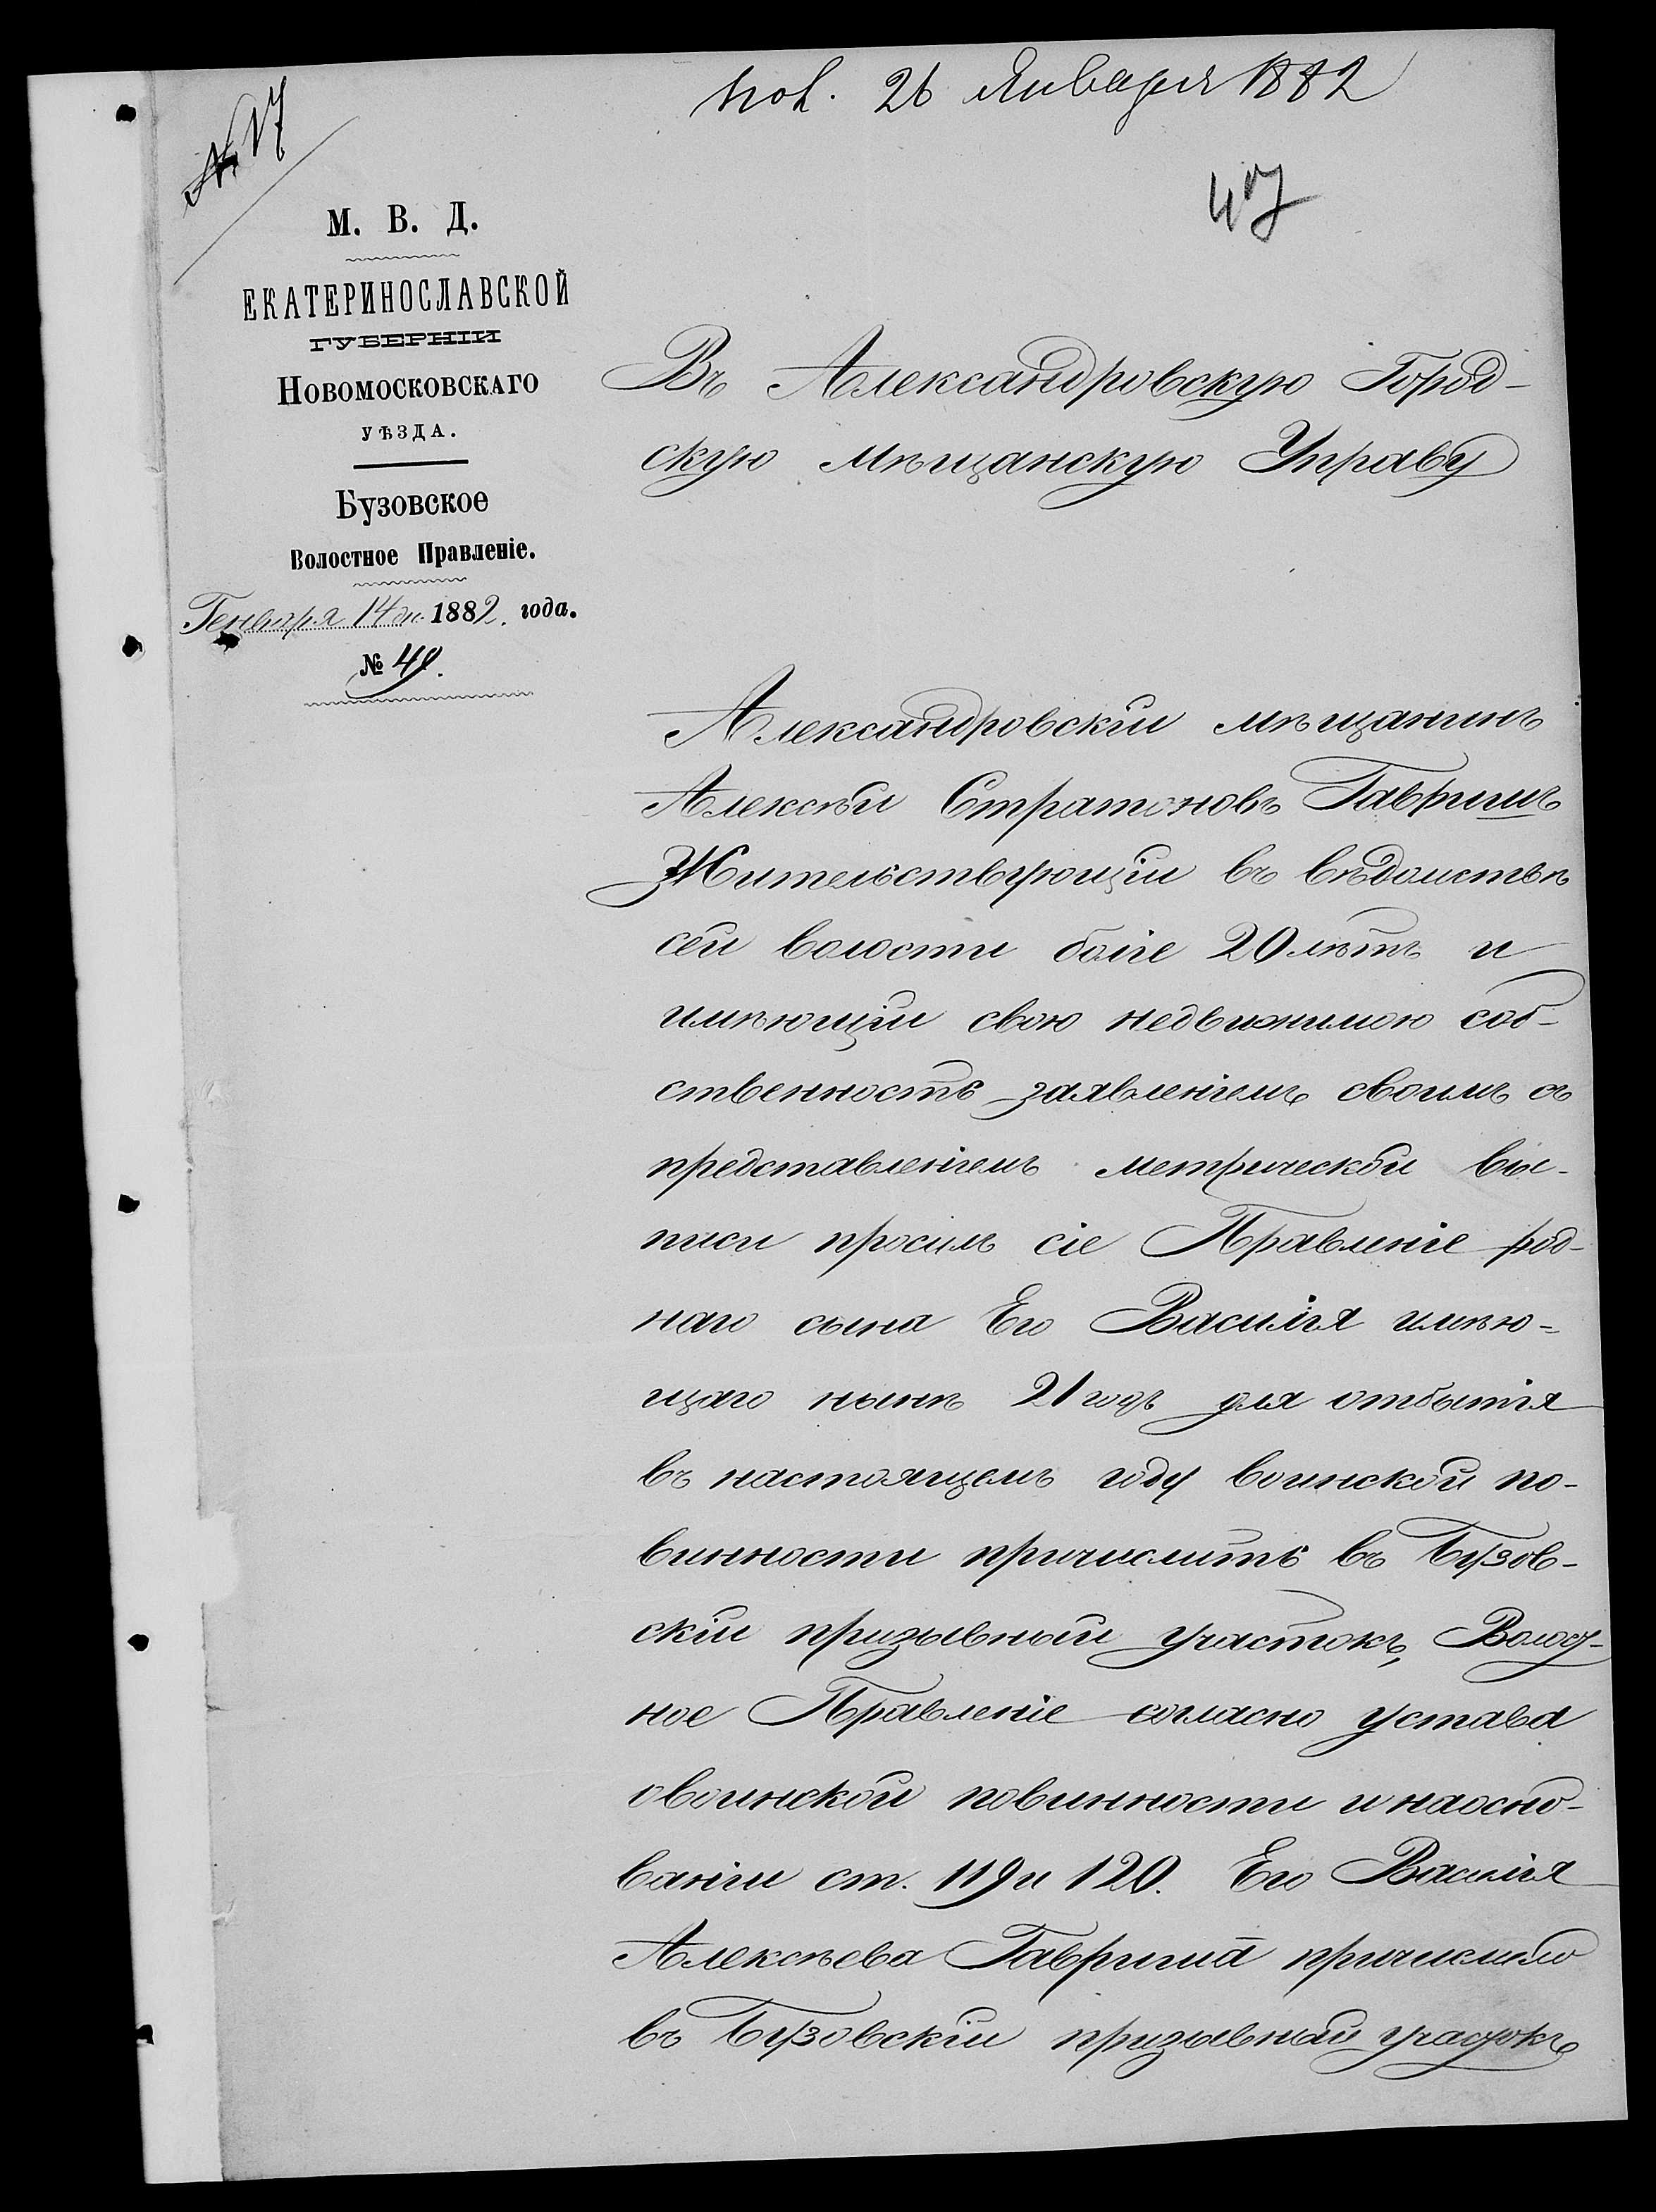 пол. 26 Января 1882
№ 17
47
М. В. Д.
ЕКАТЕРИНОСЛАВСКОЙ
ГУБЕРНІИ
НОВОМОСКОВСКАГО
УѢЗДА.
БУЗОВСКОЕ
Волостное Правленіе.
Генваря 14 дн. 1882. года.
№ 49.
Въ Александровскую Город-
скую мѣщанскую Управу
Александровскій мѣщанинъ
Алексѣй Стратоновъ Гавришъ
Жительствующій въ вѣдомствѣ
сей волости боліе 20 лѣтъ и
имѣющій свою недвижимою соб-
ственность заявленіемъ своимъ съ
представленіемъ метрической вы-
писи просилъ сіе Правленіе род-
наго сына Его Василія имѣю-
щаго нынѣ 21 годъ для отбытія
въ настоящемъ году воинской по-
винности причислить въ Бузов-
скій призывный участокъ, Волост-
ное Правленіе согласно устава
овоинской повинности и наосно-
ваніи ст. 119 и 120. Его Василія
Алексѣева Гавриша причислило
въ Бузовскій призывный участокъ